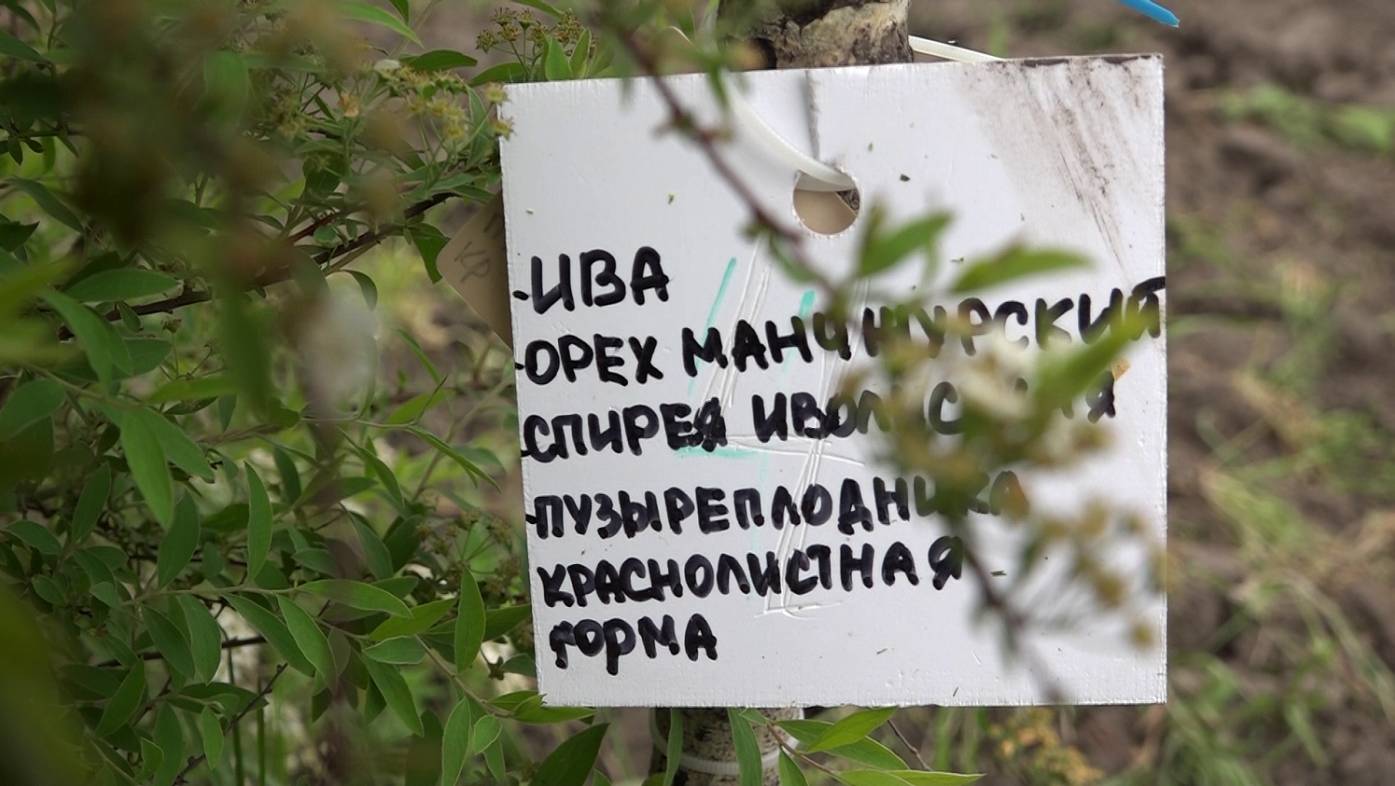 -ИВА
-ОРЕХ МАНЧЖУРСКИЙ
-СПИРЕЯ
-ПУЗЫРЕПЛОДНИКА
КРАСНОЛИСТНАЯ
ФОРМА